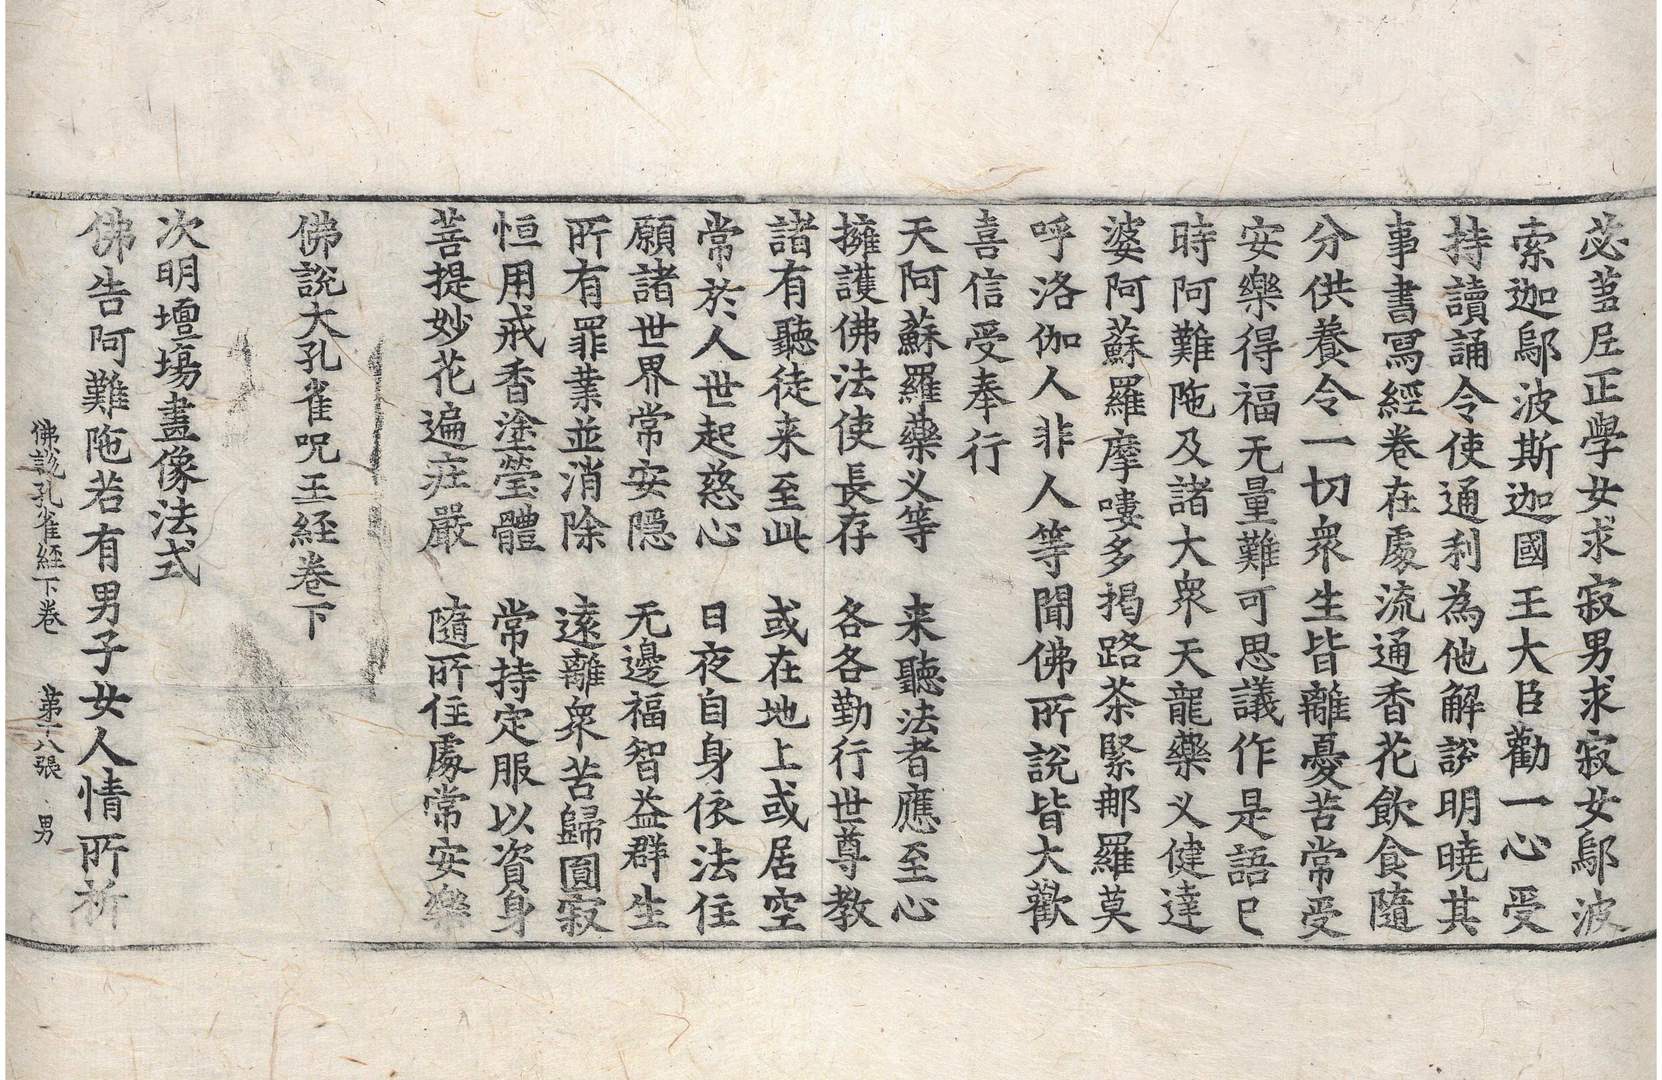 苾蒭尼正學女求寂男求寂女鄔波
索迦鄔波斯迦國王大臣勸一心受
持讀誦令使通利為他解說明曉其
事書寫經卷在處流通香花飲食隨
分供養令一切衆生皆離憂苦常受
安樂得福无量難可思議作是語已
時阿難陁及諸大衆天龍藥义健達
婆阿蘇羅摩嘍多揭路茶緊㖠羅莫
呼洛伽人非人等聞佛所說皆大歡
喜信受奉行
天阿蘇羅藥义等 来聽法者應至心
擁護佛法使長存 各各勤行世尊教
諸有聽徒来至此 或在地上或居空
常於人世起慈心 日夜自身依法住
願諸世界常安隠 无邊福智益群生
所有罪業並消除 遠離衆苦歸圓寂
恒用戒香塗瑩體 常持定服以資身
菩提妙花遍庄嚴 隨所住處常安樂
佛說大孔雀呪王経卷下
次明壇塲畫像法式
佛告阿難陁若有男子女人情所祈
佛說孔雀経下卷 第十八張 男